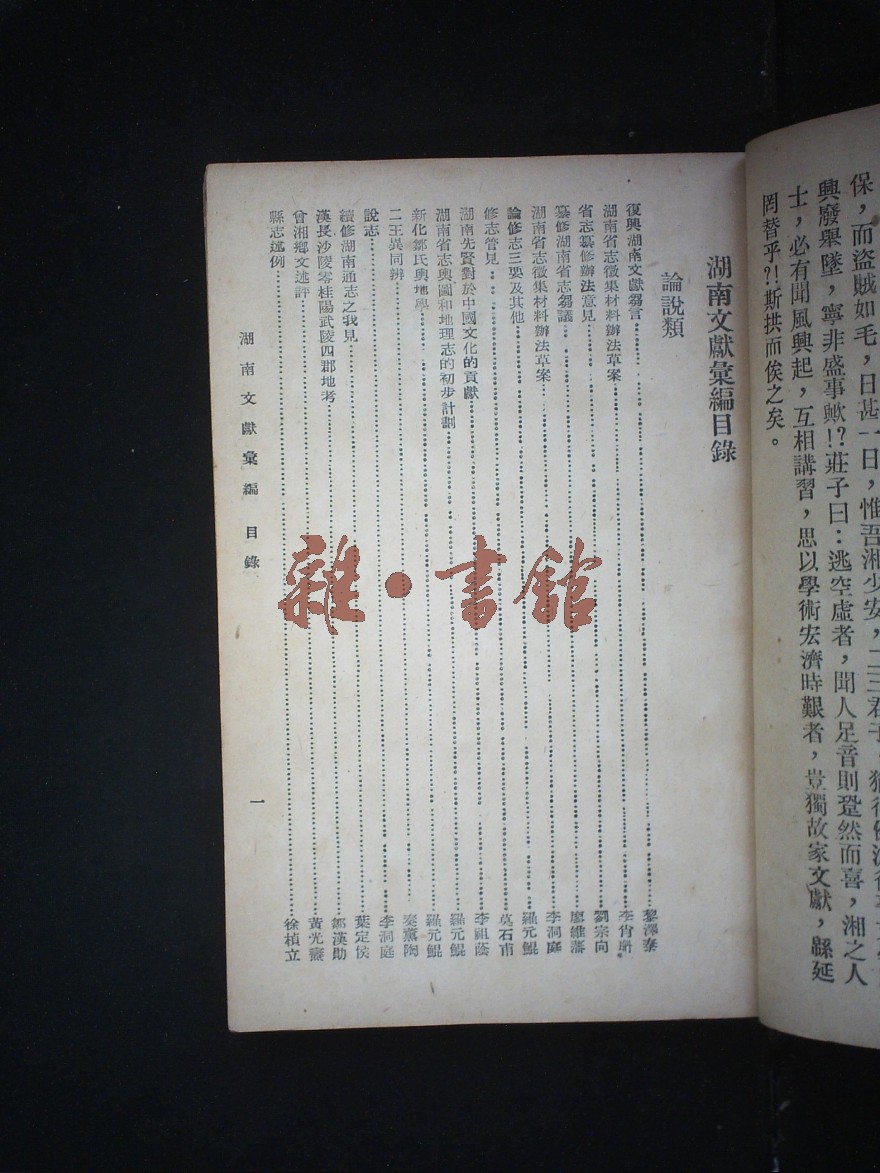 保，而盜賊如毛，日甚一日，惟吾湘少安，二三君子，猶得
興廢舉墜，寧非盛事歟！？莊子曰：逃空虛者，聞人足音則跫然而喜，湘之人
士，必有聞風興起，互相講習，思以學術宏濟時艱者，豈獨故家文獻，緜延
罔替乎？！斯拱而俟之矣。
湖南文獻彙編目錄
論說類
復興湖南文獻芻言……黎澤泰
湖南省志徵集材料辦法草案……李肖聃
省志纂修辦法意見……劉宗向
纂修湖南省志芻議……廖維藩
湖南省志徵集材料辦法草案……李洞庭
論修志三要及其他……羅元鯤
修志管見……莫石甫
湖南先賢對於中國文化的貢獻……李祖蔭
湖南省志輿圖和地理志的初步計劃……羅元鯤
新化鄒氏輿地學……羅元鯤
二王異同辨……秦薰陶
說志……李洞庭
續修湖南通志之我見……葉定侯
漢長沙陵零桂陽武陵四郡地考……鄒漢勛
曾湘鄉文述評……黃光燾
縣志述例……徐楨立
湖南文獻彙編 目錄
一
雜·書館